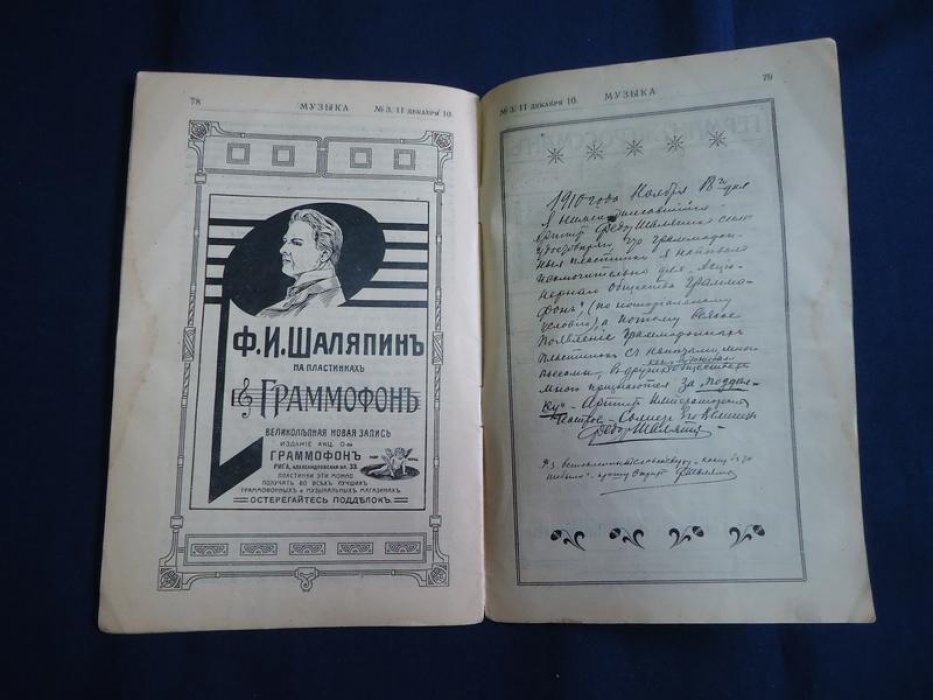 78
МУЗЫКА
№ 3. 11 ДЕКАБРЯ 10.
Ф.И.ШАЛЯПИНЪ
НА ПЛАСТИНКАХЪ
ГРАММОФОНЪ
ВЕЛИКОЛѢПНАЯ НОВАЯ ЗАПИСЬ
ИЗДАНІЕ АКЦ. О-ВА
ГРАММОФОНЪ
РИГА, АЛЕКСАНДРОВСКАЯ УЛ. 33.
ПЛАСТИНКИ ЭТИ МОЖНО
ПОЛУЧАТЬ ВО ВСѢХЪ ЛУЧШИХЪ
ГРАММОФОННЫХЪ и МУЗЫКАЛЬНЫХЪ МАГАЗИНАХЪ
ОСТЕРЕГАЙТЕСЬ ПОДДѢЛОКЪ.
№ 3. 11 ДЕКАБРЯ 10.
МУЗЫКА
79
1910 года Ноября 18го дня
Я нижеподписавшійся
Артистъ Федоръ Шаляпинъ симъ
удостовѣряю, что граммофон-
ныя пластинки я напѣваю
исключительно для „Акціо-
нернаго Общества Граммо-
фонъ“, (по нотаріальному
условію), а потому всякое
появленіе граммофонныхъ
пластинокъ съ напѣтыми мною
пьесами, въ другихъ обществахъ
мною признаются за „поддѣл-
ку“ — Артистъ Императорскихъ
Театровъ — Солистъ Его Величества
Федоръ Шаляпинъ